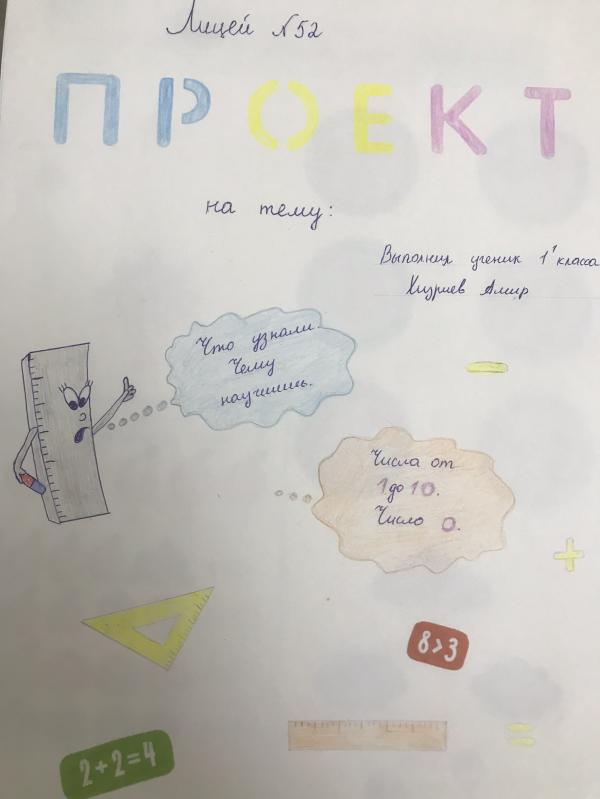 Лицей №52
ПРОЕКТ
на тему:
Выполнил ученик 1¹ класса
Хизриев Амир
Что узнали.
Чему
научились.
Числа от
1 до 10.
Число 0.
8>3
2+2=4